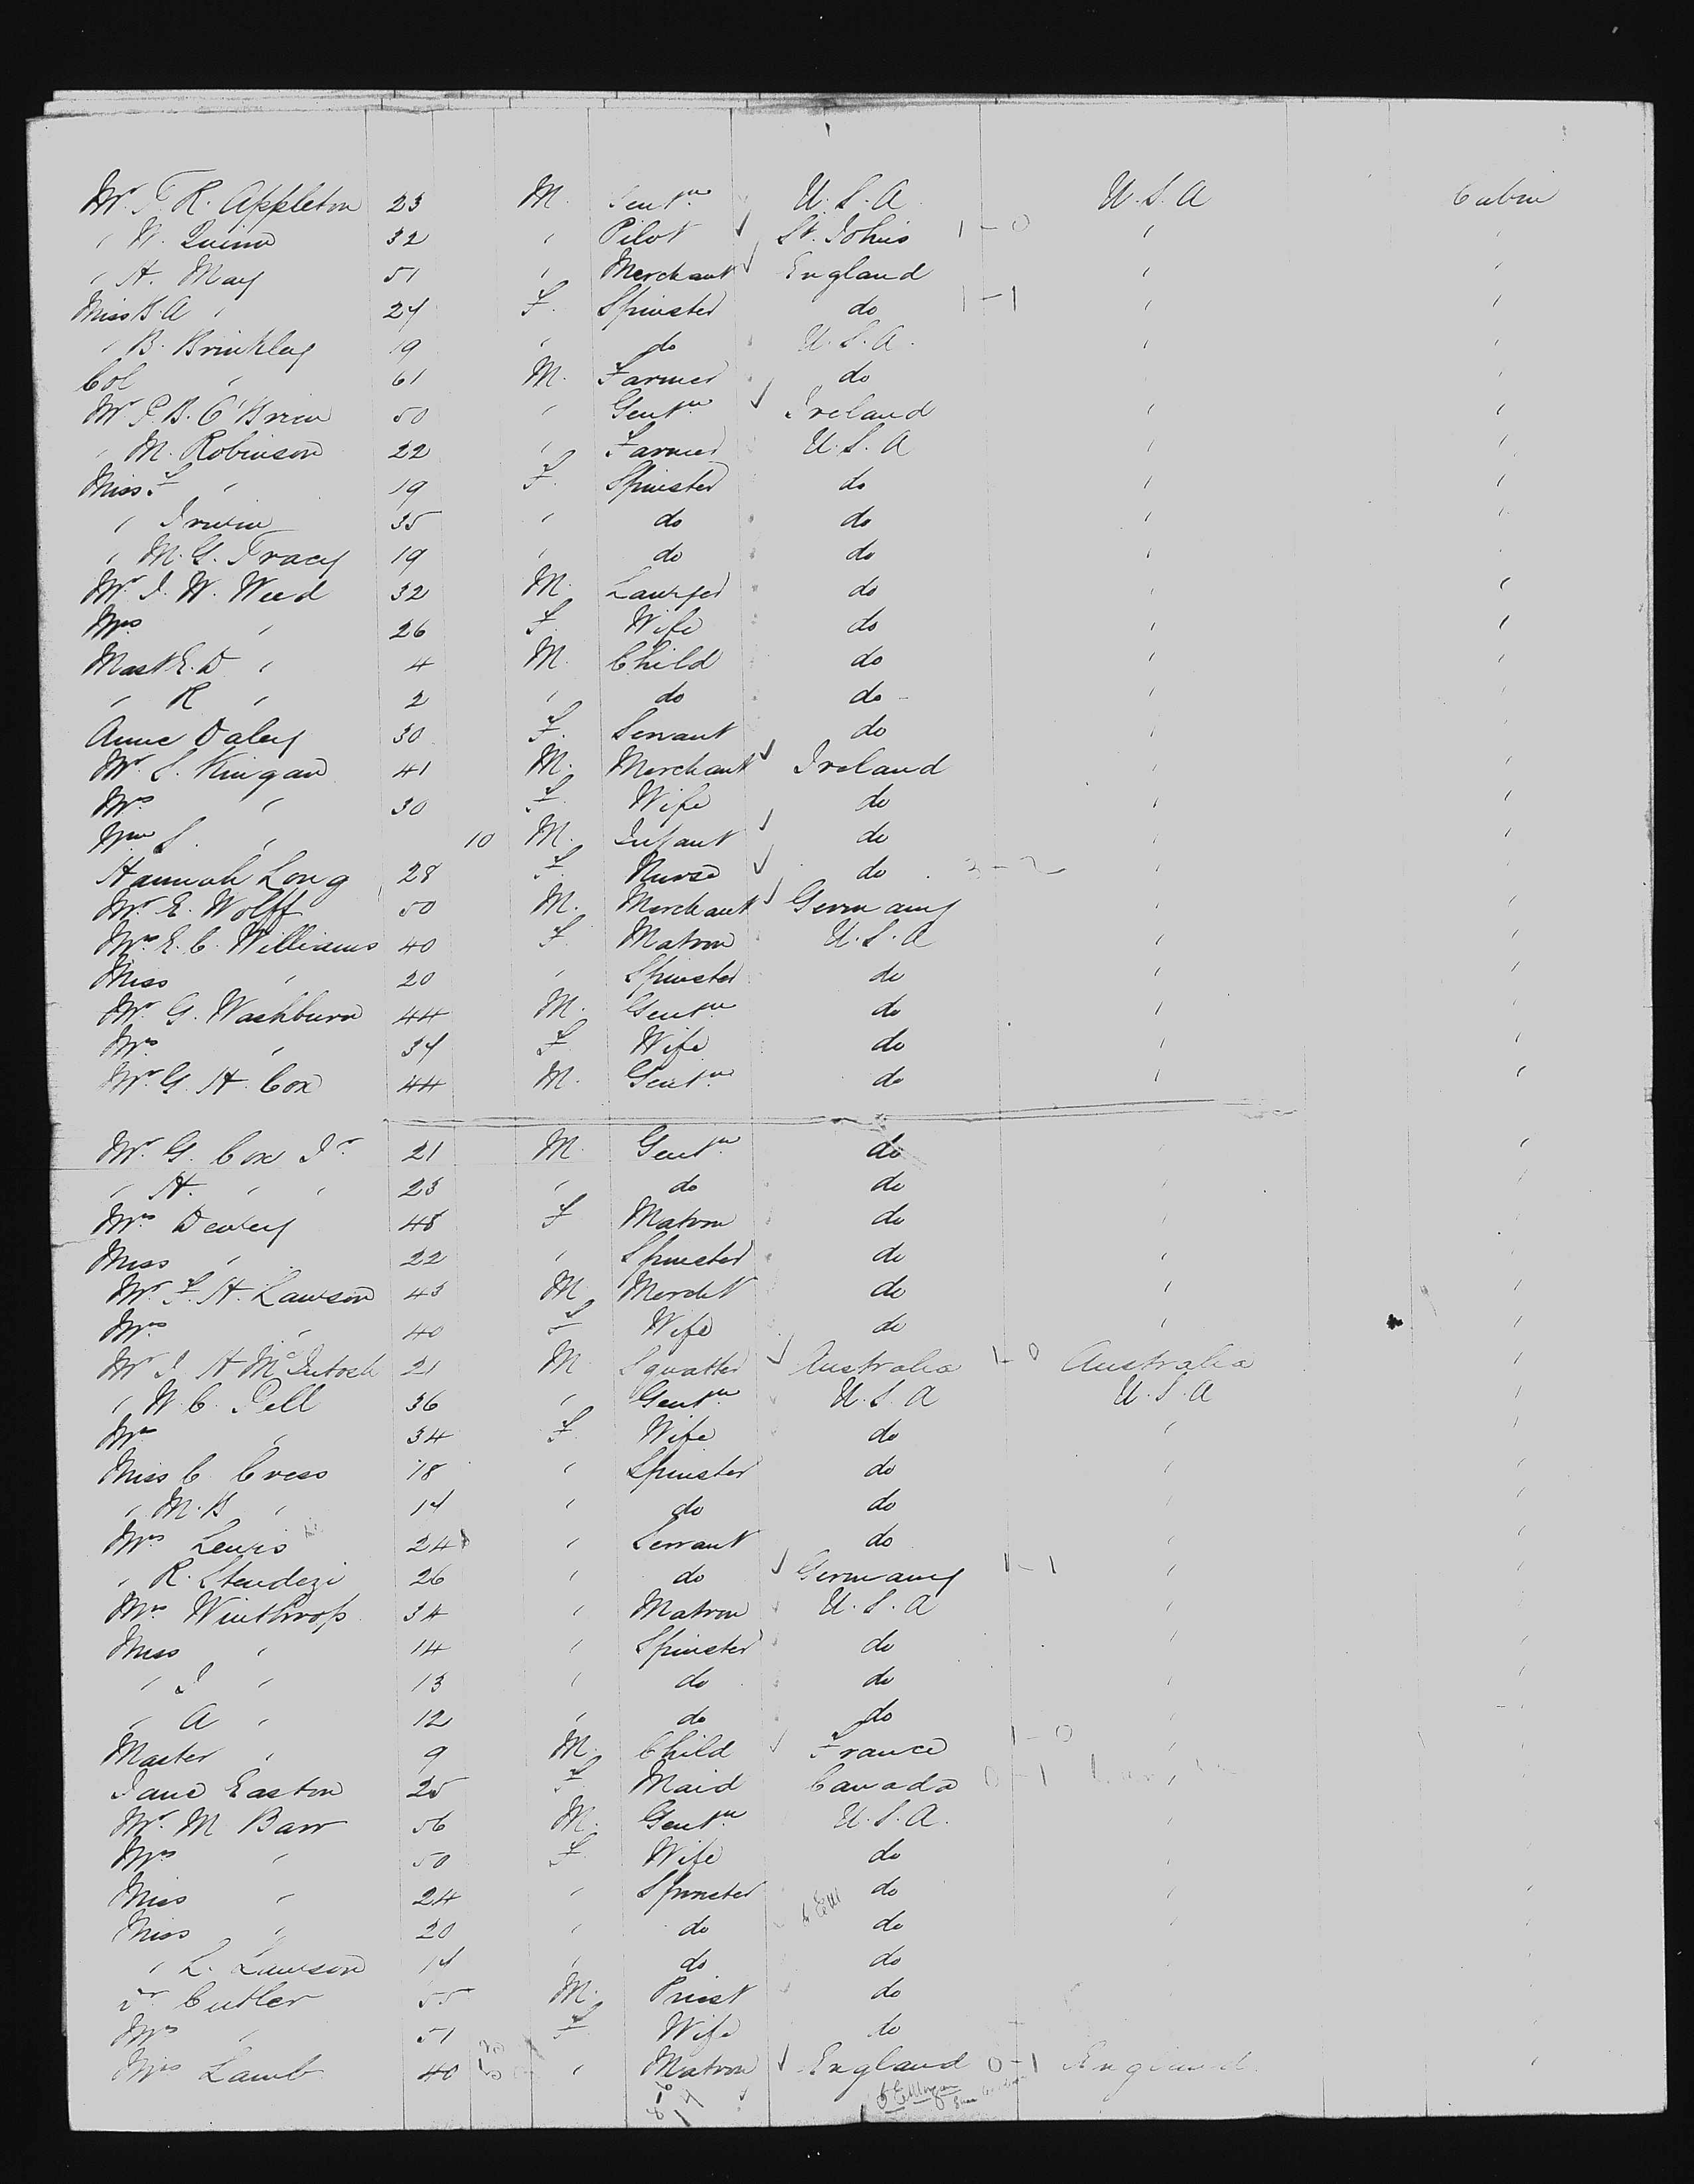 Mr. F. R. Appleton 23 M. Gentn. U.S.A. U.S.A Cabin
" W. Quinn 32 " Pilot St. Johns 1-0 " "
" H. May 51 " Merchant England " "
Miss B. A " 24 F. Spinster do 1-1 " "
" B. Brinkley 19 " do U.S.A. " "
Col " 61 M. Farmer do "
Mr P. B. O'Brien 50 " Gentn. Ireland " "
" M. Robinson 22 " Farmer U.S.A " "
Miss F " 19 F. Spinster do " "
" Irwin 35 " do do " "
" M. G. Tracy 19 " do do "
Mr. J. W. Weed 32 M. Lawyer do " "
Mrs " 26 F. Wife do " "
Mast E. D " 4 M. Child do " "
" R " 2 " do do " "
Anne Daley 30 F. Servant do " "
Mr. S. Kingan 41 M. Merchant Ireland " "
Mrs " 30 F. Wife do " "
Wm S. " 10 M. Infant do " "
Hannah Long 28 F. Nurse do 3-2 " "
Mr. E. Wolff 50 M. Merchant Germany " "
Mrs. E. C. Williams 40 F. Matron U.S.A " "
Miss " 20 " Spinster do " "
Mr. G. Washburn 44 M. Gentn. do " "
Mrs. " 34 F. Wife do " "
Mr. G. H. Cox 44 M. Gentn. do " "
Mr. G. Cox Jr. 21 M. Gentn. do " "
" H. " " 23 " do do " "
Mrs. Dewey 48 F Matron do " "
Miss " 22 " Spinster do " "
Mr. F. H. Lawson 43 M. Mercht do " "
Mrs. " 40 F Wife do " "
Mr J. H McIntosh 21 M Squatter Australia 1-0 Australia "
" W. C. Pell 36 " Gentn. U.S.A U.S.A "
Mrs " 34 F. Wife do " "
Miss C. Cress 18 " Spinster do " "
" M. B " 14 " do do " "
Mrs Lewis 24 " Servant do " "
" R. 26 " do Germany 1-1 " "
Mrs Winthrop 34 " Matron U.S.A " "
Miss " 14 " Spinster do " "
" J " 13 " do do " "
" A " 12 " do do " "
Master " 9 M. Child France 1-0 "
Jane Easton 25 F Maid Canada 0-1 "
Mr. M Barr 56 M. Gentn. U.S.A. "
Mrs " 50 F. Wife do "
Miss " 24 " Spinster do " "
Miss " 20 " do do " "
" L. Lawson 14 " do do "
Dr. Cutler 55 M. Priest do
Mrs " 51 F Wife do
Mrs Lamb 40 " Matron England 0-1 England "